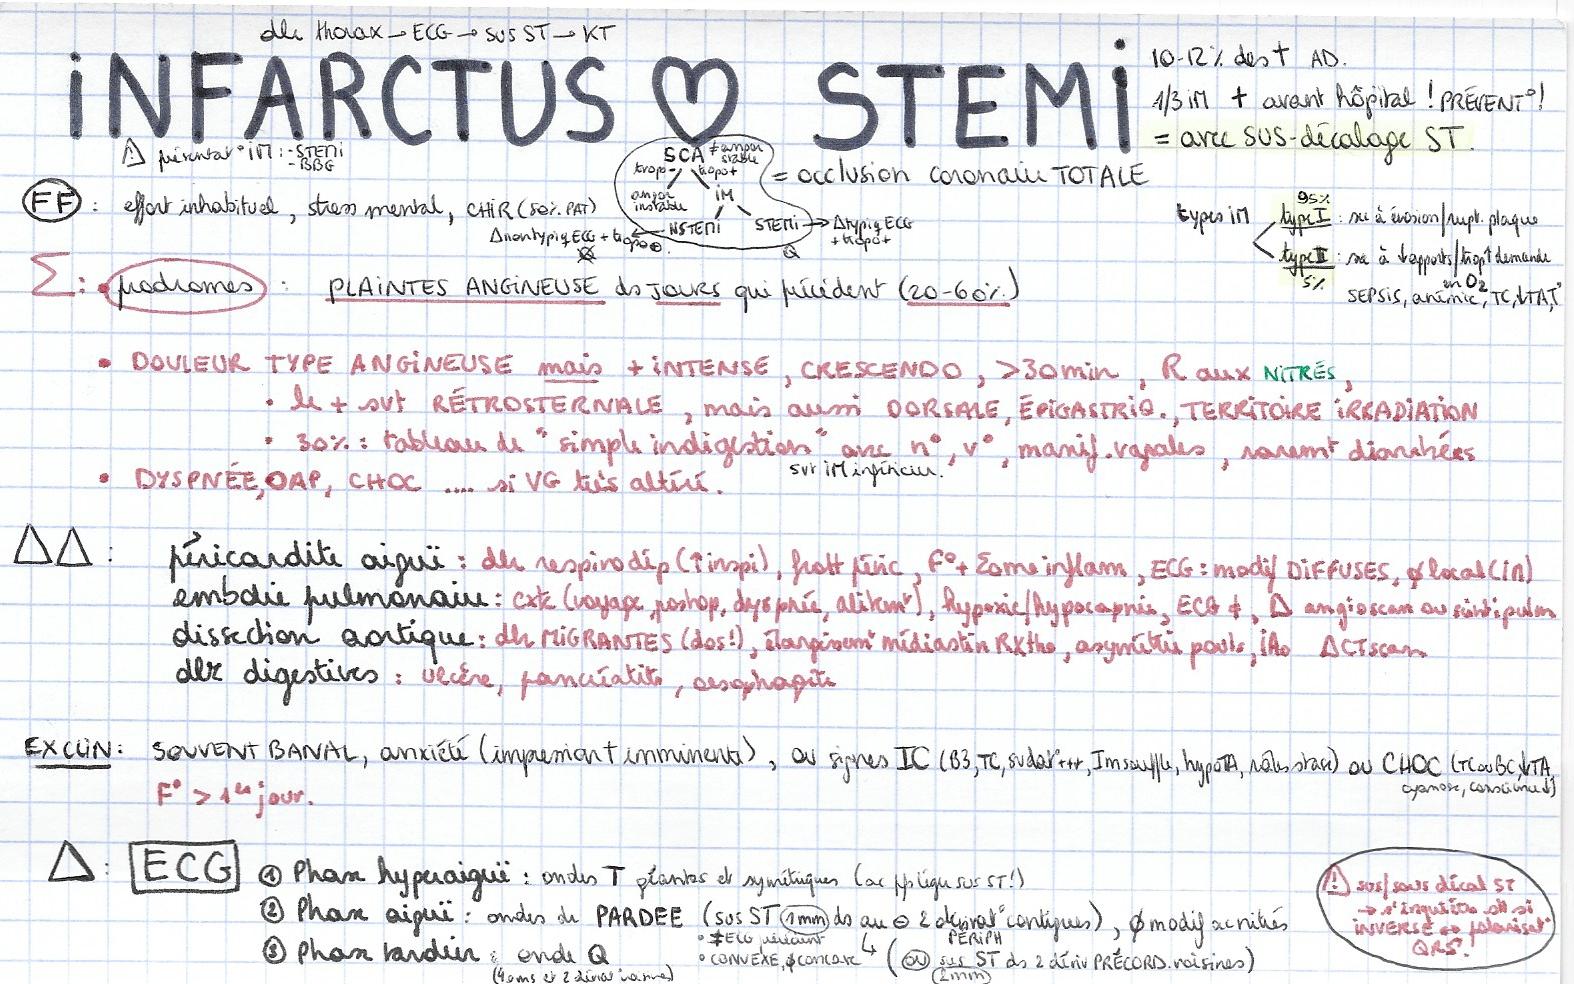 dlr thorax → ECG → sus ST → KT
INFARCTUS ♡ STEMI
10-12% des † AD.
1/3 IM † avant hôpital ! PRÉVENT° !
= avec SUS-décalage ST.
⚠ présentat° IM : - STEMI
- BBG
SCA ≠ angor stable
tropo- tropo+
angor instable
IM
NSTEMI STEMI → Δ typiq ECG + tropo+
Δ non typiq ECG + tropo ⊕
Q
= occlusion coronaire TOTALE
FF : effort inhabituel, stress mental, CHIR (50% PAT)
types IM
95%
type I : sec à érosion/rupt. plaque
type II : sec à ↓apports/trop ↑demande en O2
5%
SEPSIS, anémie, TC, ↓TA, T°
Σ : • prodromes : PLAINTES ANGINEUSE ds JOURS qui précèdent (20-60%)
• DOULEUR TYPE ANGINEUSE mais + INTENSE, CRESCENDO, >30min, R aux NITRÉS,
• le + svt RÉTROSTERNALE, mais aussi DORSALE, ÉPIGASTRIQ., TERRITOIRE IRRADIATION
• 30% : tableau de "simple indigestion" avec n°, v°, manif. vagales, rarement diarrhées
svt IM inférieur.
• DYSPNÉE, OAP, CHOC .... si VG très altéré.
ΔΔ : péricardite aiguë : dlr respirodép (↑inspi), frott péric, F° + Σome inflam, ECG : modif DIFFUSES, ∅ local (IM)
embolie pulmonaire : cxte (voyage, postop, dyspnée, alitemt), hypoxie/hypocapnie, ECG ≠, Δ angioscan ou scintipulm
dissection aortique : dlr MIGRANTES (dos!), élargissemt médiastin RXtho, asymétrie pouls, IAo Δ CTscan
dlr digestives : ulcère, pancréatite, oesophagite
EXCLIN : SOUVENT BANAL, anxiété (impression † imminente), ou signes IC (B3, TC, sudat°+++, Im souffle, hypoTA, râles stase) ou CHOC (TC ou BC, ↓TA,
cyanose, conscience↓)
F° > 1er jour.
Δ : ECG ① Phase hyperaiguë : ondes T géantes et symétriques (ac sus ST!)
② Phase aiguë : ondes de PARDEE (sus ST 1mm ds au ⊖ 2 dérivat° contiguës), ∅ modif
PÉRIPH
• ≠ ECG précédent
• CONVEXE, ∅ concave ↳ (OU sus ST ds 2 dériv PRÉCORD. voisines)
(2mm)
③ Phase tardive : onde Q
⚠ sus/sous décal ST
→ s'inquiéter slt si
INVERSE ↔ polarisat°
QRS !